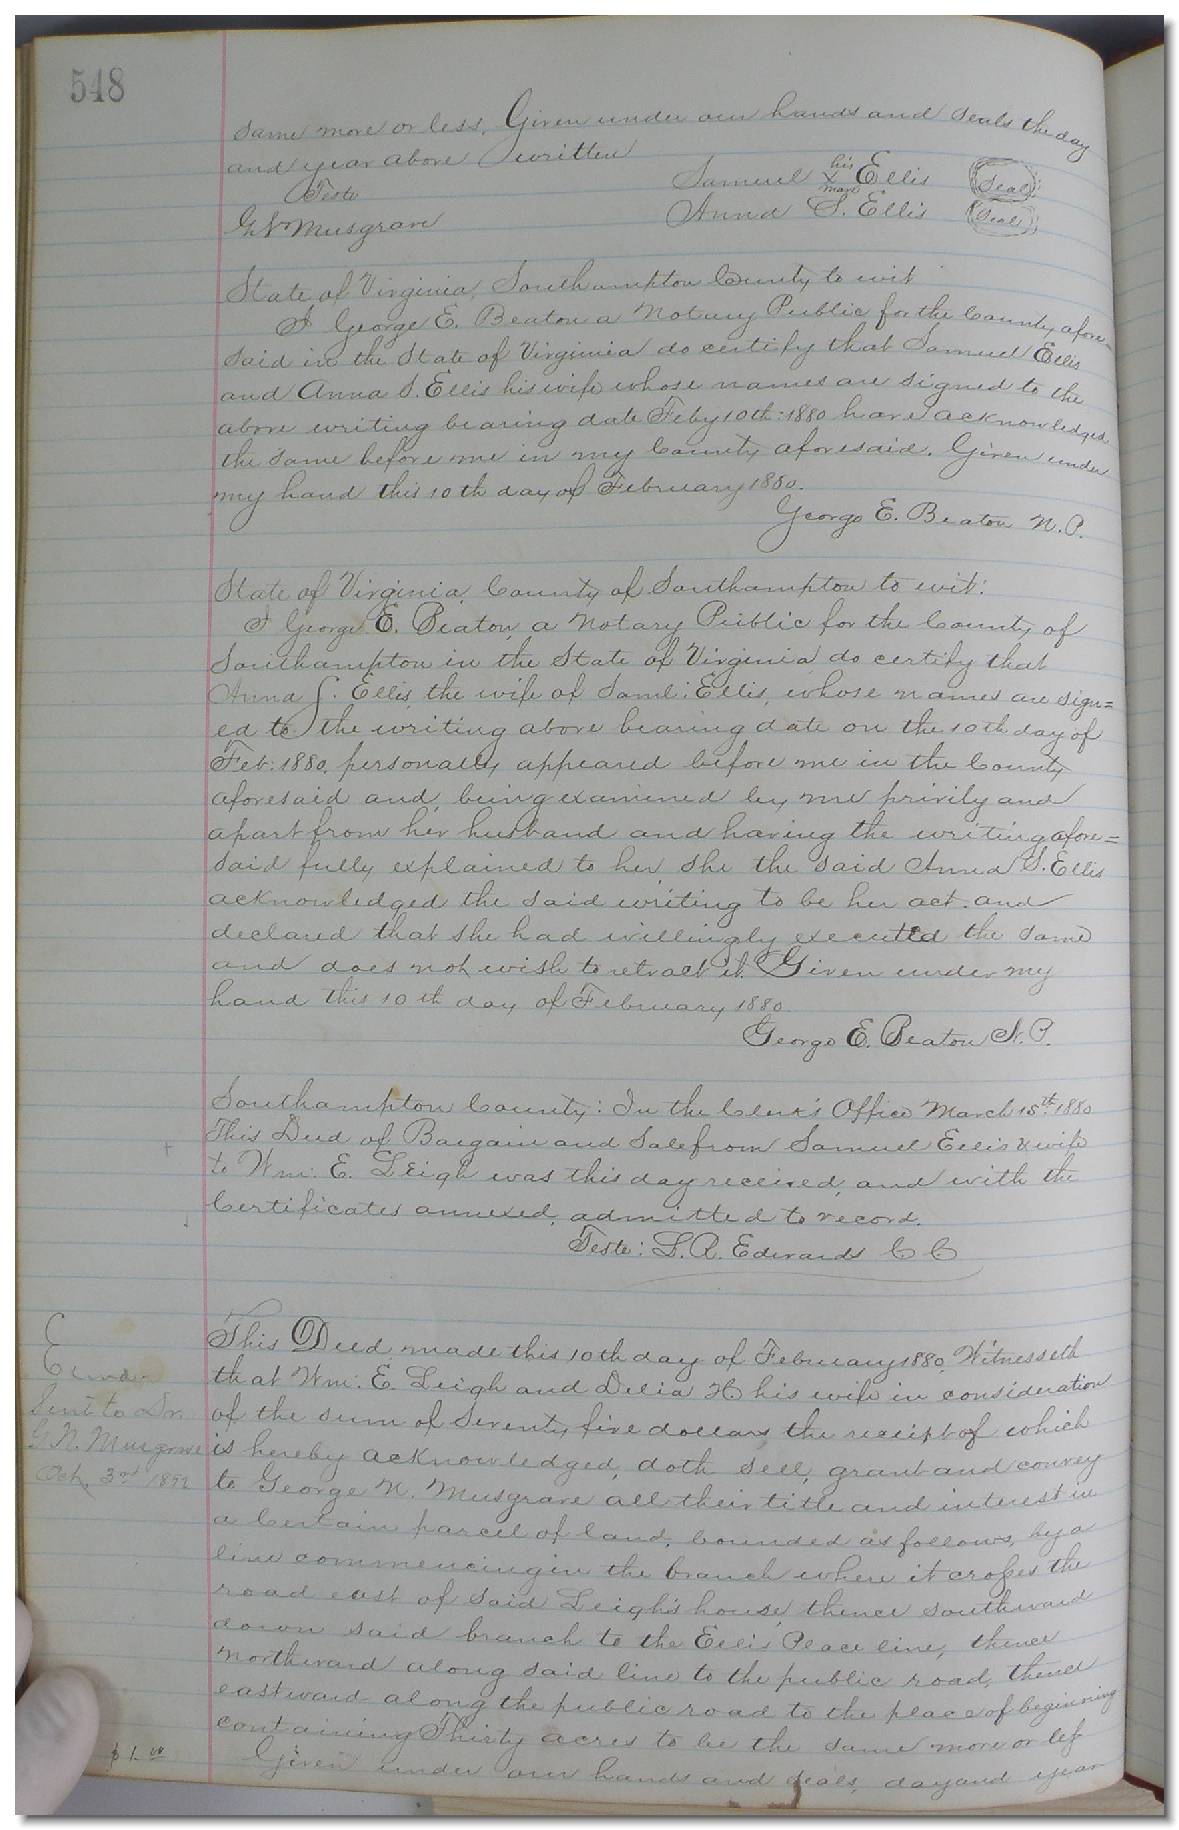 548
same more or less. Given under our hands and seals the day
and year above written
Teste
Samuel his X mark Ellis (Seal)
G. N. Musgrave
Anna S. Ellis (Seal)
State of Virginia, Southampton County to wit
I George E. Beaton a Notary Public for the County afore-
said in the State of Virginia do certify that Samuel Ellis
and Anna S. Ellis his wife whose names are signed to the
above writing bearing date Feby 10th: 1880 have acknowledged
the same before me in my County aforesaid. Given under
my hand this 10th day of February 1880.
George E. Beaton N.P.
State of Virginia, County of Southampton to wit:
I George E. Beaton, a Notary Public for the County of
Southampton in the State of Virginia do certify that
Anna S. Ellis, the wife of Saml: Ellis, whose names are sign=
ed to the writing above bearing date on the 10th day of
Feb: 1880, personally appeared before me in the County
aforesaid and, being examined by me privily and
apart from her husband and having the writing afore=
said fully explained to her, she the said Anna S. Ellis
acknowledged the said writing to be her act. and
declared that she had willingly executed the same
and does not wish to retract it. Given under my
hand this 10th day of February 1880.
George E. Beaton N.P.
Southampton County: In the Clerk's Office March 15th 1880
This Deed of Bargain and Sale from Samuel Ellis & wife
to Wm. E. Leigh was this day received, and with the
Certificates annexed, admitted to record.
Teste: L. R. Edwards C C
This Deed, made this 10th day of February 1880, Witnesseth
that Wm: E. Leigh and Delia H. his wife in consideration
of the sum of Seventy five dollars, the receipt of which
is hereby acknowledged, doth sell, grant and convey
to George N. Musgrave all their title and interest in
a Certain parcel of land, bounded as follows, by a
line commencing in the branch where it crosses the
road east of said Leigh's house, thence southward
down said branch to the Ellis Place line, thence
northward along said line to the public road, thence
eastward along the public road to the place of beginning
containing Thirty acres to be the same more or less
Given under our hands and seals, day and year
Sent to Dr.
G. N. Musgrave
Oct. 3rd 1892
$1.00